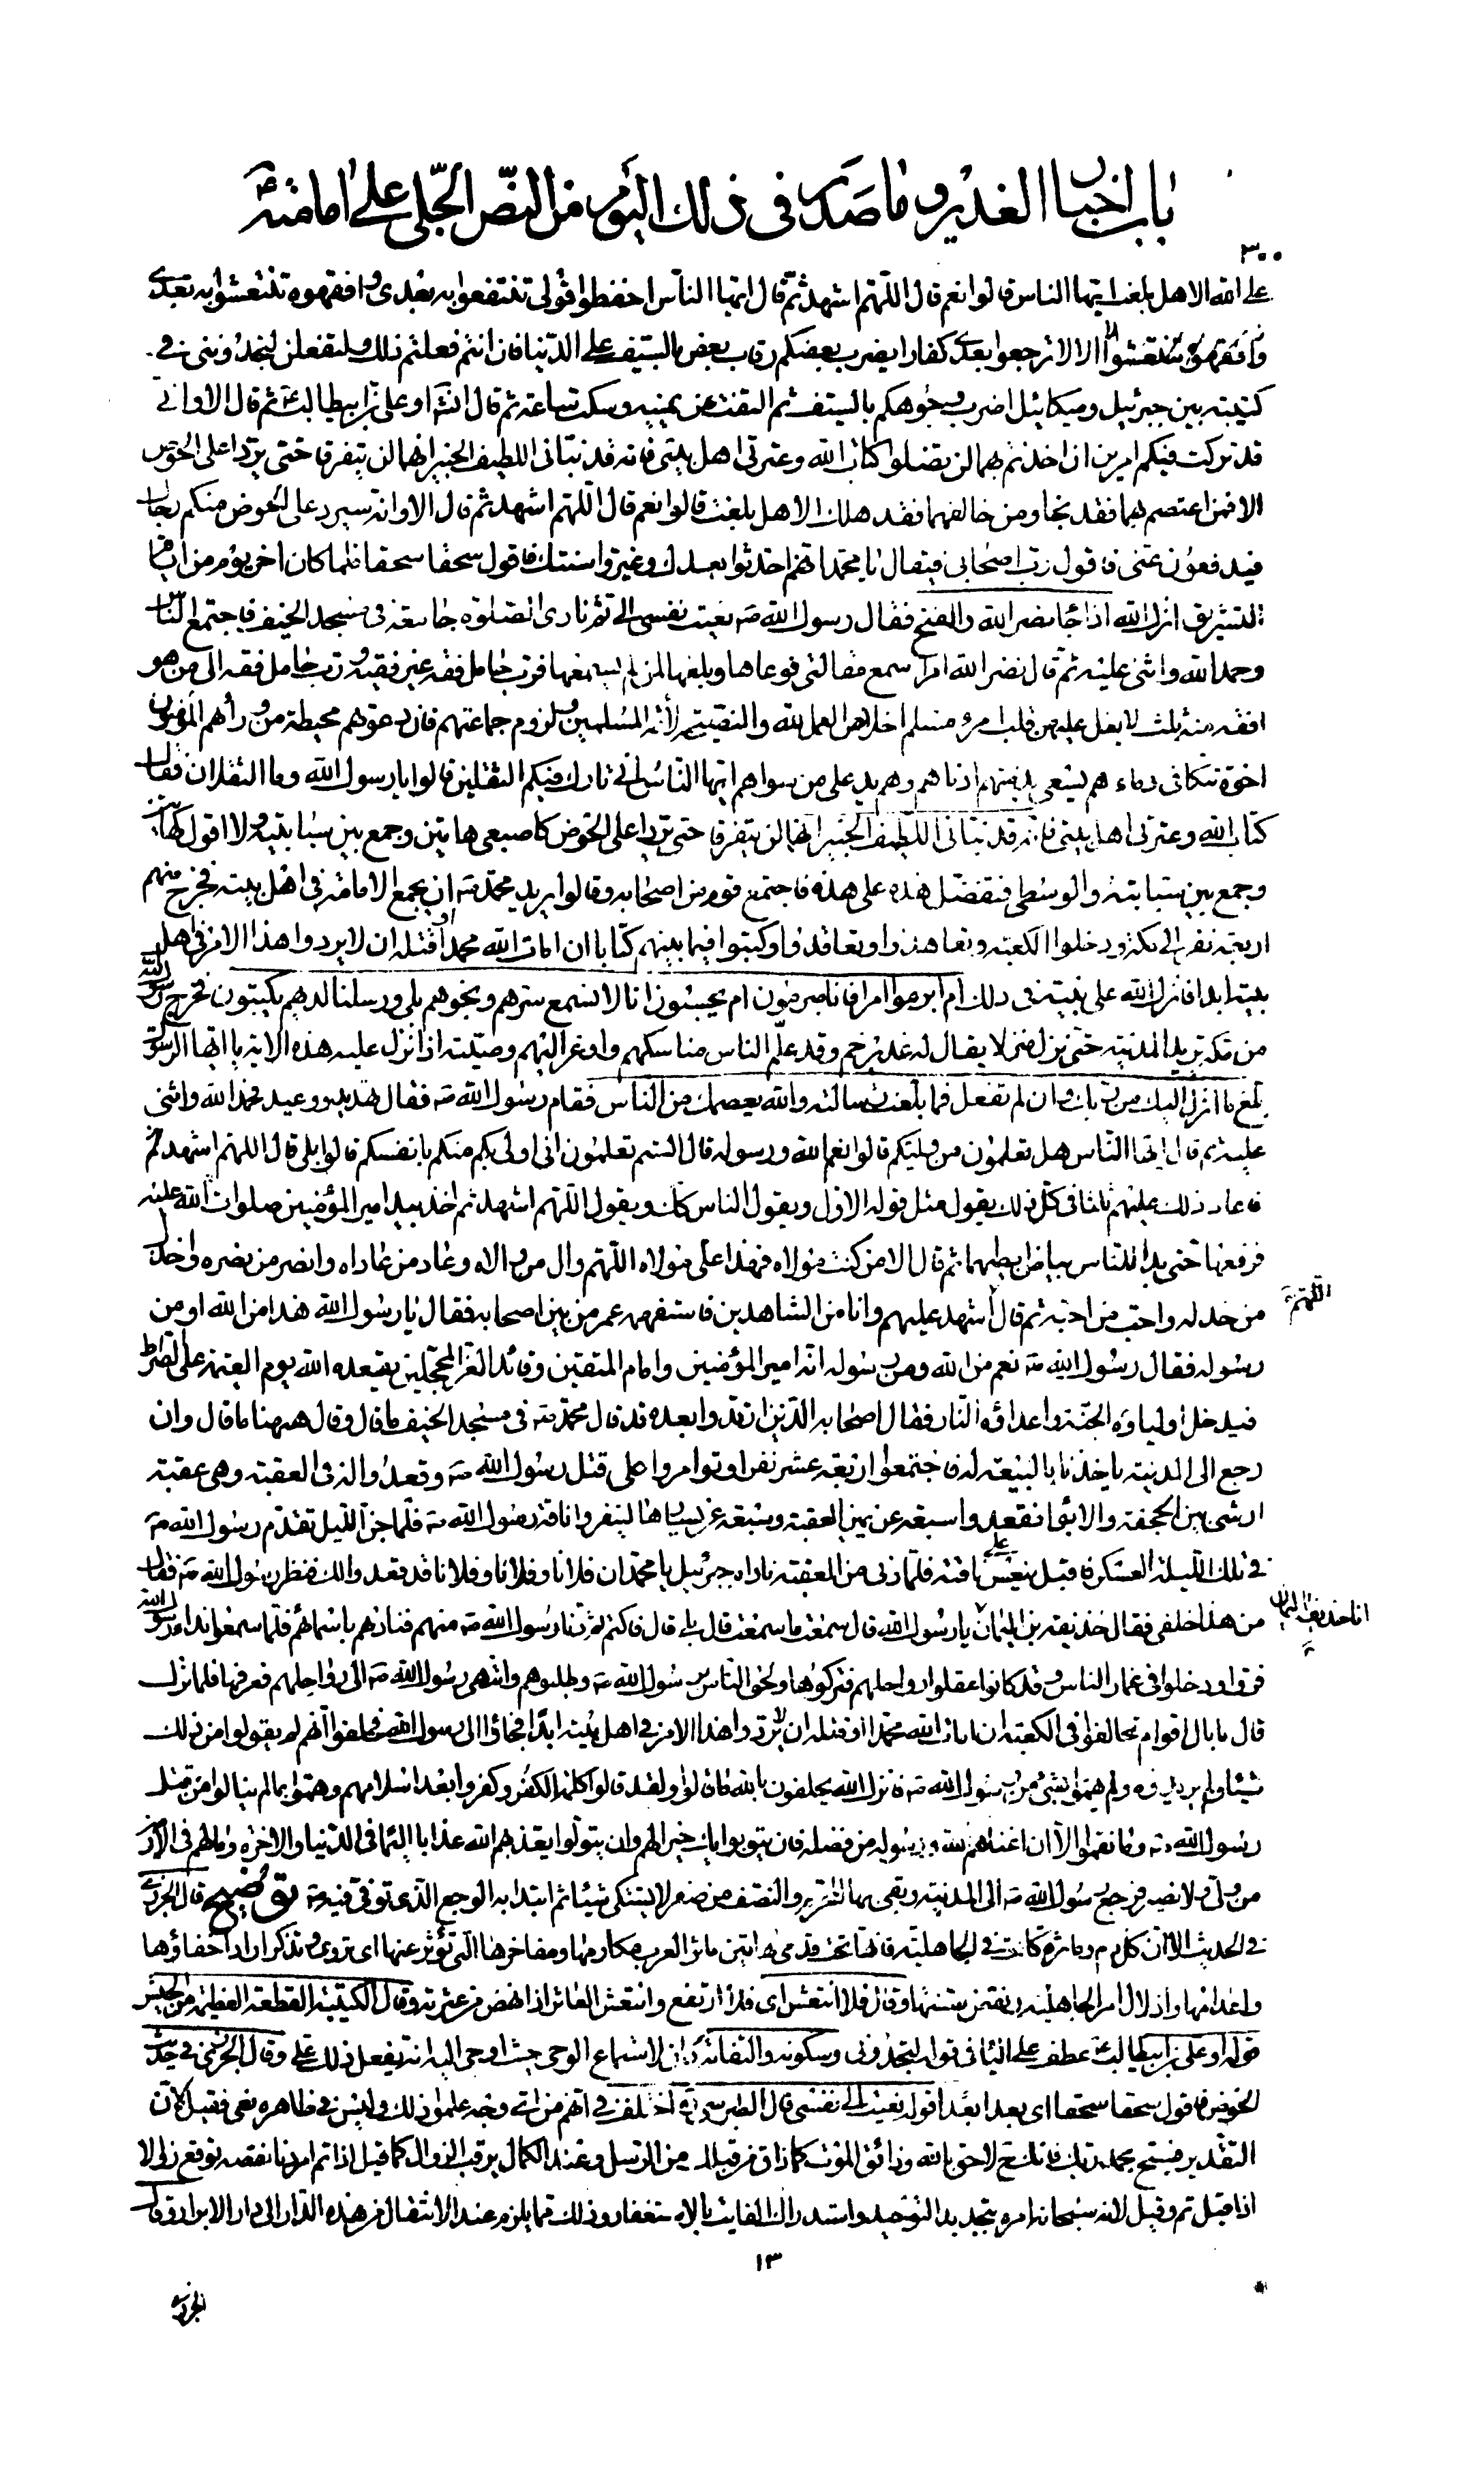 باب اخبار الغدير وما صدر فى ذلك اليوم من النص الجلى على امامته ع
٣٠٠
على الله الا هل بلغت ايها الناس قالوا نعم قال اللهم اشهد ثم قال ايها الناس احفظوا قولى تنتفعوا به بعدى وافقهوه تنتعشوا به بعدى
الا لا ترجعوا بعدى كفارا يضرب بعضكم رقاب بعض بالسيف على الدنيا فان انتم فعلتم ذلك ولتفعلن لتجدونى فى
كتيبته بين جبرئيل وميكائيل اضرب وجوهكم بالسيف ثم التفت عن يمينه وسكت ساعة ثم قال انشاء الله او على بن ابيطالب ع ثم قال الا وانى
قد تركت فيكم امرين ان اخذتم بهما لن تضلوا كتاب الله وعترتى اهل بيتى فانه قد نبأنى اللطيف الخبير انهما لن يتفرقا حتى يردا على الحوض
الا فمن اعتصم بهما فقد نجا ومن خالفهما فقد هلك الا هل بلغت قالوا نعم قال اللهم اشهد ثم قال الا وانه سيرد على الحوض منكم رجال
فيدفعون عنى فاقول رب اصحابى فيقال يا محمد انهم احدثوا بعدك وغيروا سنتك فاقول سحقا سحقا فلما كان اخر يوم من ايام
التشريق انزل الله اذا جاء نصر الله والفتح فقال رسول الله ص نعيت نفسى الى ثم نادى الصلوة جامعة فى مسجد الخيف فاجتمع الناس
وحمد الله واثنى عليه ثم قال نضر الله امرأ سمع مقالتى فوعاها وبلغها لمن لم يسمعها فرب حامل فقه غير فقيه ورب حامل فقه الى من هو
افقه منه ثلث لا يغل عليهن قلب امرء مسلم اخلاص العمل لله والنصيحة لأئمة المسلمين ولزوم جماعتهم فان دعوتهم محيطة من ورأهم المؤمنون
اخوة تتكافى دماءهم يسعى بذمتهم ادناهم وهم يد على من سواهم ايها الناس انى تارك فيكم الثقلين قالوا يا رسول الله وما الثقلان فقال
كتاب الله وعترتى اهل بيتى فانه قد نبأنى اللطيف الخبير انهما لن يتفرقا حتى يردا على الحوض كاصبعى هاتين وجمع بين سبابتيه ولا اقول كهاتين
وجمع بين سبابته والوسطى فتفضل هذه على هذه فاجتمع قوم من اصحابه وقالوا يريد محمد ص ان يجمع الامامة فى اهل بيته فخرج منهم
اربعة نفر الى مكة ودخلوا الكعبة وتعاهدوا وتعاقدوا وكتبوا فيما بينهم كتابا ان امات الله محمدا او قتله ان لا يردوا هذا الامر فى اهل
بيته ابدا فانزل الله على نبيه فى ذلك ام ابرموا امرا فانا مبرمون ام يحسبون انا لا نسمع سرهم ونجويهم بلى ورسلنا لديهم يكتبون فخرج رسول الله
من مكة يريد المدينة حتى نزل منزلا يقال له غدير خم وقد علم الناس مناسكهم واوعز اليهم وصيته اذ انزل عليه هذه الاية يا ايها الرسول
بلغ ما انزل اليك من ربك وان لم تفعل فما بلغت رسالته والله يعصمك من الناس فقام رسول الله ص فقال تهديد ووعيد فحمد الله واثنى
عليه ثم قال ايها الناس هل تعلمون من وليكم قالوا نعم الله ورسوله قال الستم تعلمون انى اولى بكم منكم بانفسكم قالوا بلى قال اللهم اشهد ثم
فاعاد ذلك عليهم ثلثا فى كل ذلك يقول مثل قوله الاول ويقول الناس كك ويقول اللهم اشهد ثم اخذ بيد امير المؤمنين صلوات الله عليه
فرفعها حتى بدا للناس بياض ابطيهما ثم قال الا من كنت مولاه فهذا على مولاه اللهم وال من والاه وعاد من عاداه وانصر من نصره واخذل
من خذله واحب من احبه ثم قال اشهد عليهم وانا من الشاهدين فاستفهمه عمر من بين اصحابه فقال يا رسول الله هذا من الله او من
اللهم
رسوله فقال رسول الله ص نعم من الله ومن رسوله انه امير المؤمنين وامام المتقين وقائد الغر المحجلين يقعده الله يوم القيمة على الصراط
فيدخل اولياؤه الجنة واعداؤه النار فقال اصحابه الذين ارتدوا بعده قد قال محمد ص فى مسجد الخيف ما قال وقال ههنا ما قال وان
رجع الى المدينة ياخذنا بالبيعة له فاجتمعوا اربعة عشر نفرا وتوامروا على قتل رسول الله ص وقعدوا له فى العقبة وهى عقبة
ارشى بين الجحفة والابواء فقعدوا سبعة عن يمين العقبة وسبعة عن يسارها لينفروا ناقة رسول الله ص فلما جن الليل تقدم رسول الله ص
فى تلك الليلة العسكر فاقبل ينعس على ناقته فلما دنى من العقبة ناداه جبرئيل يا محمد ان فلانا وفلانا وفلانا قد قعدوا لك فنظر رسول الله ص فقال
من هذا خلفى فقال حذيفة بن اليمان يا رسول الله قال سمعت ما سمعت قال بلى قال فاكتم ثم دنا رسول الله ص منهم فناداهم باسمائهم فلما سمعوا نداء رسول الله
انا حذيفة بن اليمان
فروا ودخلوا فى غمار الناس وقد كانوا عقلوا رواحلهم فتركوها ولحق الناس برسول الله ص وطلبوهم وانتهى رسول الله ص الى رواحلهم فعرفها فلما نزل
قال ما بال اقوام تحالفوا فى الكعبة ان امات الله محمدا او قتله ان لا يردوا هذا الامر فى اهل بيته ابدا فجاؤا الى رسول الله ص فحلفوا انهم لم يقولوا من ذلك
شيئا ولم يريدوه ولم يهموا بشئ من رسول الله ص فانزل الله يحلفون بالله ما قالوا ولقد قالوا كلمة الكفر وكفروا بعد اسلامهم وهموا بما لم ينالوا من قتل
رسول الله ص وما نقموا الا ان اغناهم الله ورسوله من فضله فان يتوبوا يك خيرا لهم وان يتولوا يعذبهم الله عذابا اليما فى الدنيا والاخرة وما لهم فى الارض
من ولى ولا نصير فرجع رسول الله ص الى المدينة وبقى بها المحرم والنصف من صفر لا يشتكى شيئا ثم ابتدا به الوجع الذى توفى فيه ص توضيح قال الجزرى
فى الحديث الا ان كل دم ومأثرة كانت فى الجاهلية فانها تحت قدمى هاتين ماثر العرب مكارمها ومفاخرها التى تؤثر عنها اى تروى وتذكر اراد اخفاؤها
واعدامها واذلال امر الجاهلية ونقض سنتها وقال فلا انتعش اى فلا ارتفع وانتعش العاثر اذا نهض من عثرته وقال الكتيبة القطعة العظيمة من الجيش
قوله او على بن ابيطالب ع عطف على الياء فى قوله لتجدونى وسكوته والتفاته كان لاستماع الوحى حيث اوحى اليه انه يفعل ذلك على ع وقال الجزرى فى حديث
الحوض فاقول سحقا سحقا اى بعدا بعدا قوله نعيت الى نفسى قال الطبرسى ره اختلف فى انهم من اى وجه علموا ذلك وليس فى ظاهره نعى فقيل لان
التقدير فسبح بحمد ربك فانك ح لاحق بالله وذائق الموت كما ذاق من قبلك من الرسل وعند الكمال يرقب الزوال كما قيل اذا تم امر دنا نقصه توقع زوالا
اذا قيل تم وقيل لانه سبحانه امره بتجديد التوحيد واستدراك الفايت بالاستغفار وذلك مما يلزم عند الانتقال من هذه الدار الى دار الابرار وقال
١٣
الجزرى